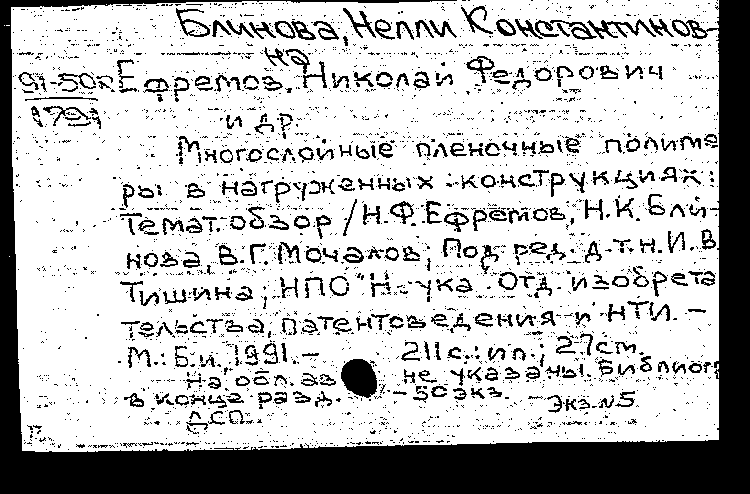 Блинова, Нелли Константинов-
на
91-50к Ефремов, Николай Федорович
1791 и др.
Многослойные пленочные полиме
ры в нагруженных конструкциях:
Темат. обзор / Н.Ф. Ефремов, Н.К. Бли-
нова, В.Г. Мочалов; Под ред. д.т.н. И.В.
Тишина; НПО "Наука". Отд. изобрета
тельства, патентоведения и НТИ. –
М.: Б.и., 1991. – 211 с.: ил.; 27 см.
На обл. ав не указаны. Библиогр
в конце разд. – 50 экз. Экз. №5
ДСП